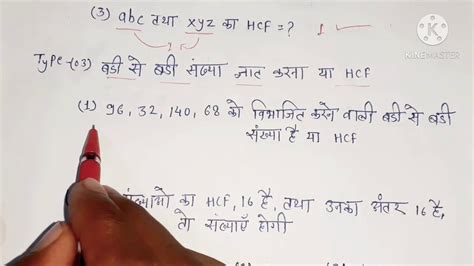 (3) abc तथा xyz का HCF = ? 1
1
KINEMASTER
Type-(03) बडी से बडी संख्या ज्ञात करना या HCF
(1) 96, 32, 140, 68 को विभाजित करने वाली बडी से बडी
संख्या है या HCF
संख्याओ का HCF, 16 है, तथा उनका अंतर 16 है,
तो संख्याएँ होगी